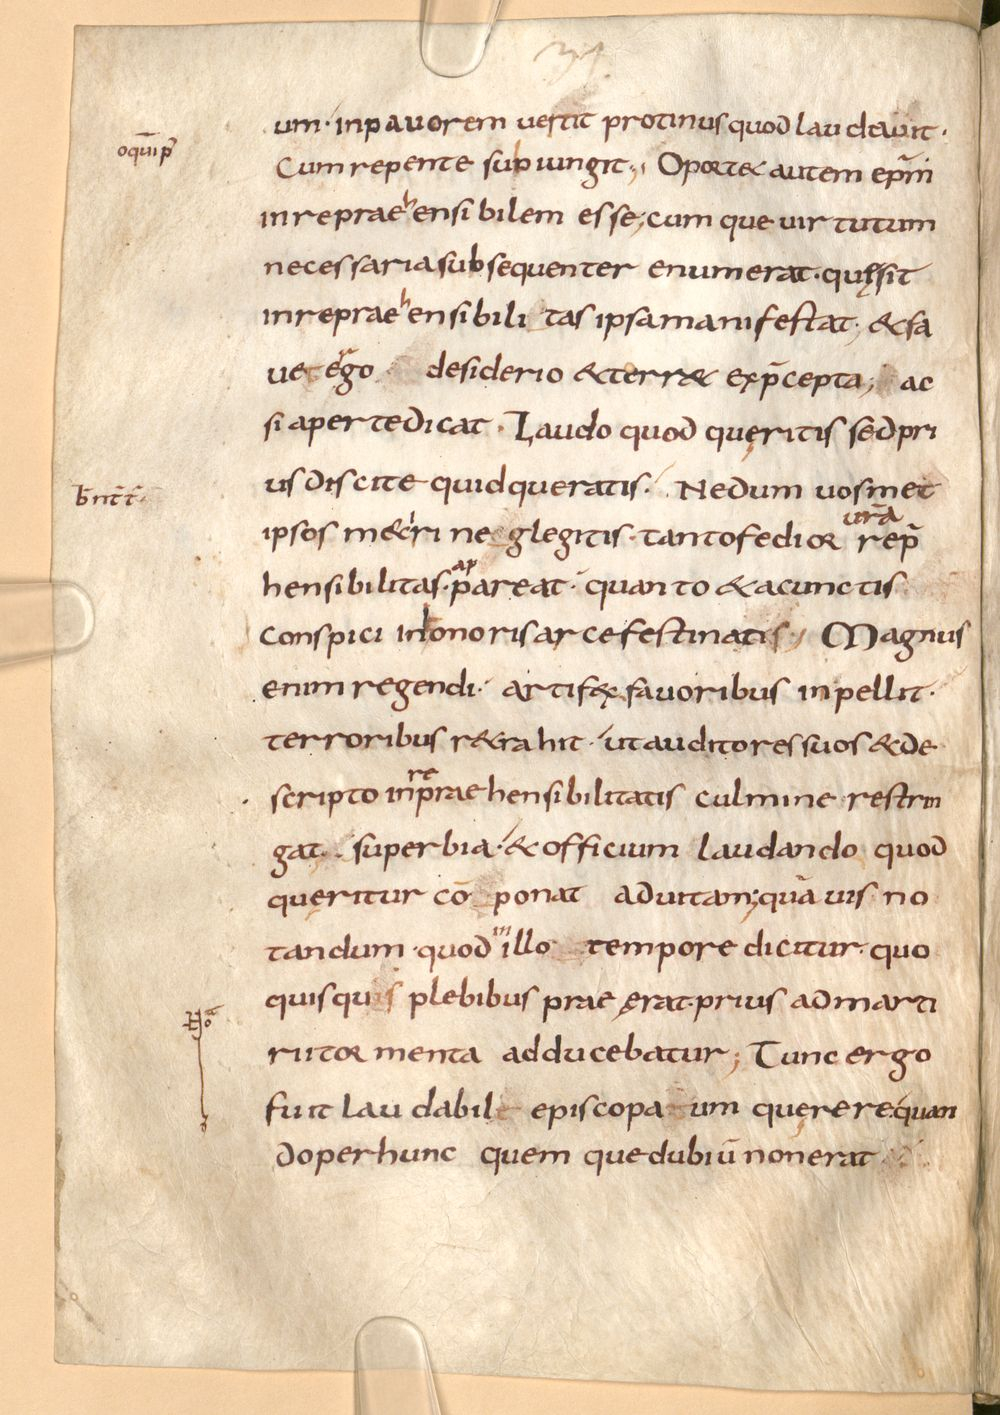 um· inpavorem vertit protinus quod laudavit·
oquīp̄
Cum repente subiungit·, Oportet autem ep̄m
inreprae hensibilem esse; cumque uirtutum
necessaria subsequenter enumerat· quę sit
inreprae hensibilitas ipsa manifestat· & fa
uet ergo desiderio & terr& ex p̄cepta; ac
si aperte dicat· Laudo quod quęritis sed pri
us discite quid queratis· Nedum uosmet
ipsos m&iri neglegitis· tanto fedior ur̄a rep̄
hensibilitas· appareat· quanto & a cunctis
conspici in honoris arce festinatis; Magnus
enim regendi· artifex favoribus inpellit·
terroribus r&rahit· ut auditores suos & de
scripto inreprae hensibilitatis culmine restrin
gat superbia· & officium laudando quod
queritur cō ponat ad uitam; quāuis no
tandum· quod in illo tempore dicitur· quo
quisquis plebibus prae ęrat· prius ad marti
rii tormenta adducebatur; Tunc ergo
fuit laudabile episcopatum quęrere· quan
do per hunc quemque dubiū non erat